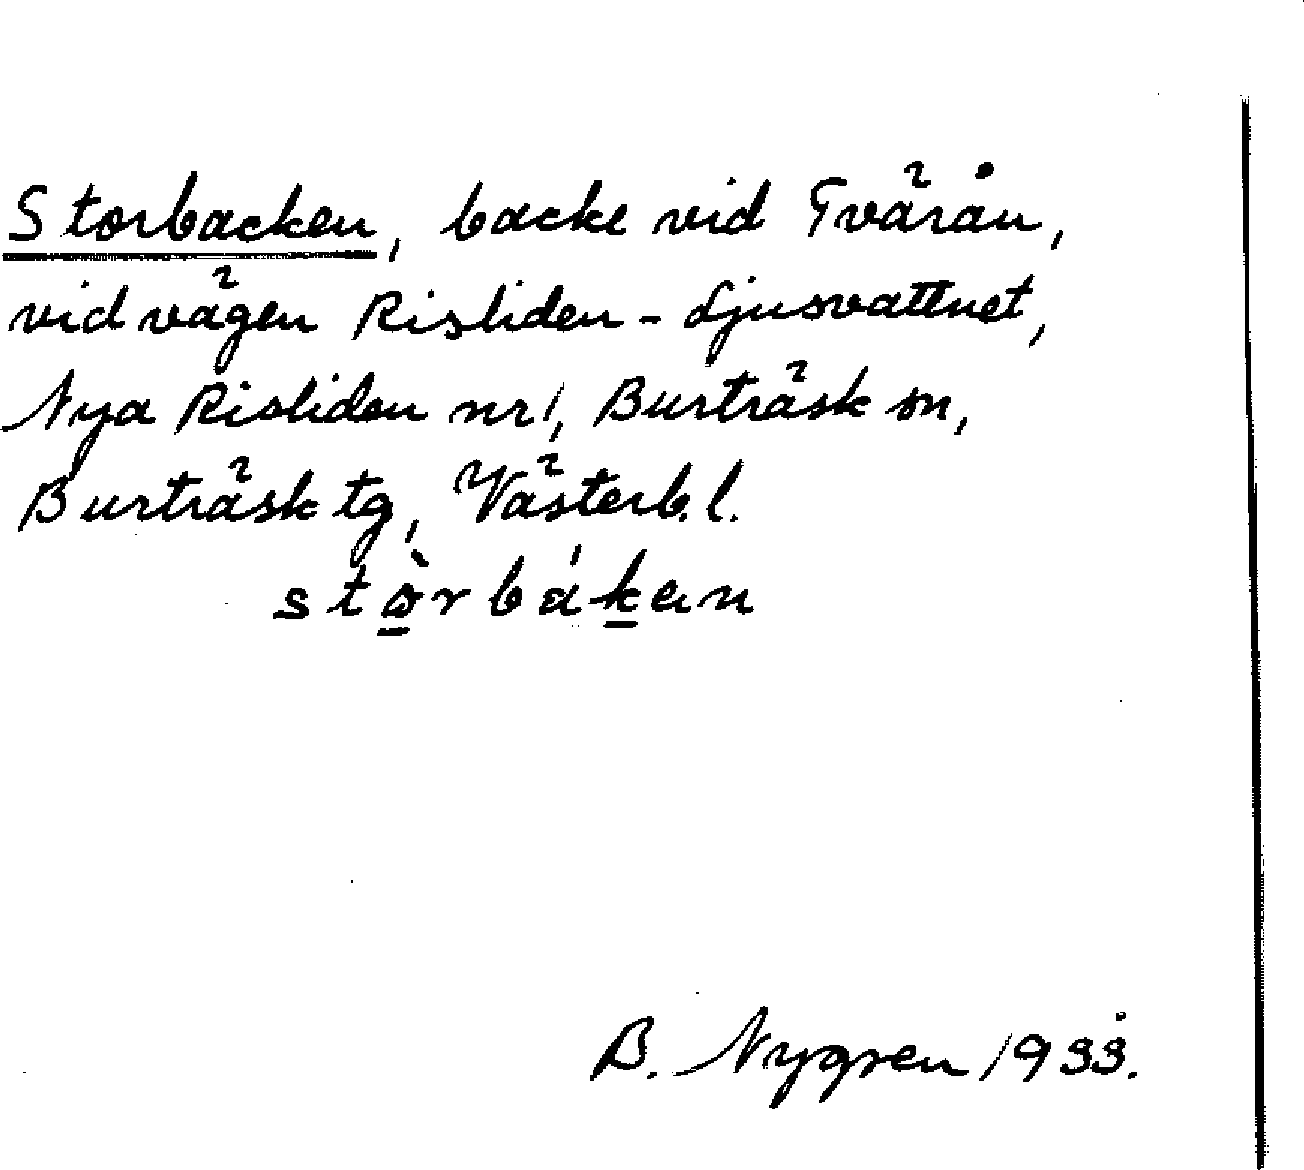 Storbacken, backe vid Tvärån,
vid vägen Risliden - Ljusvattnet,
Nya Risliden nr 1, Burträsk sn,
Burträsk tg, Västerb. l.
stò̠rbák̠en
B. Nygren 1933.